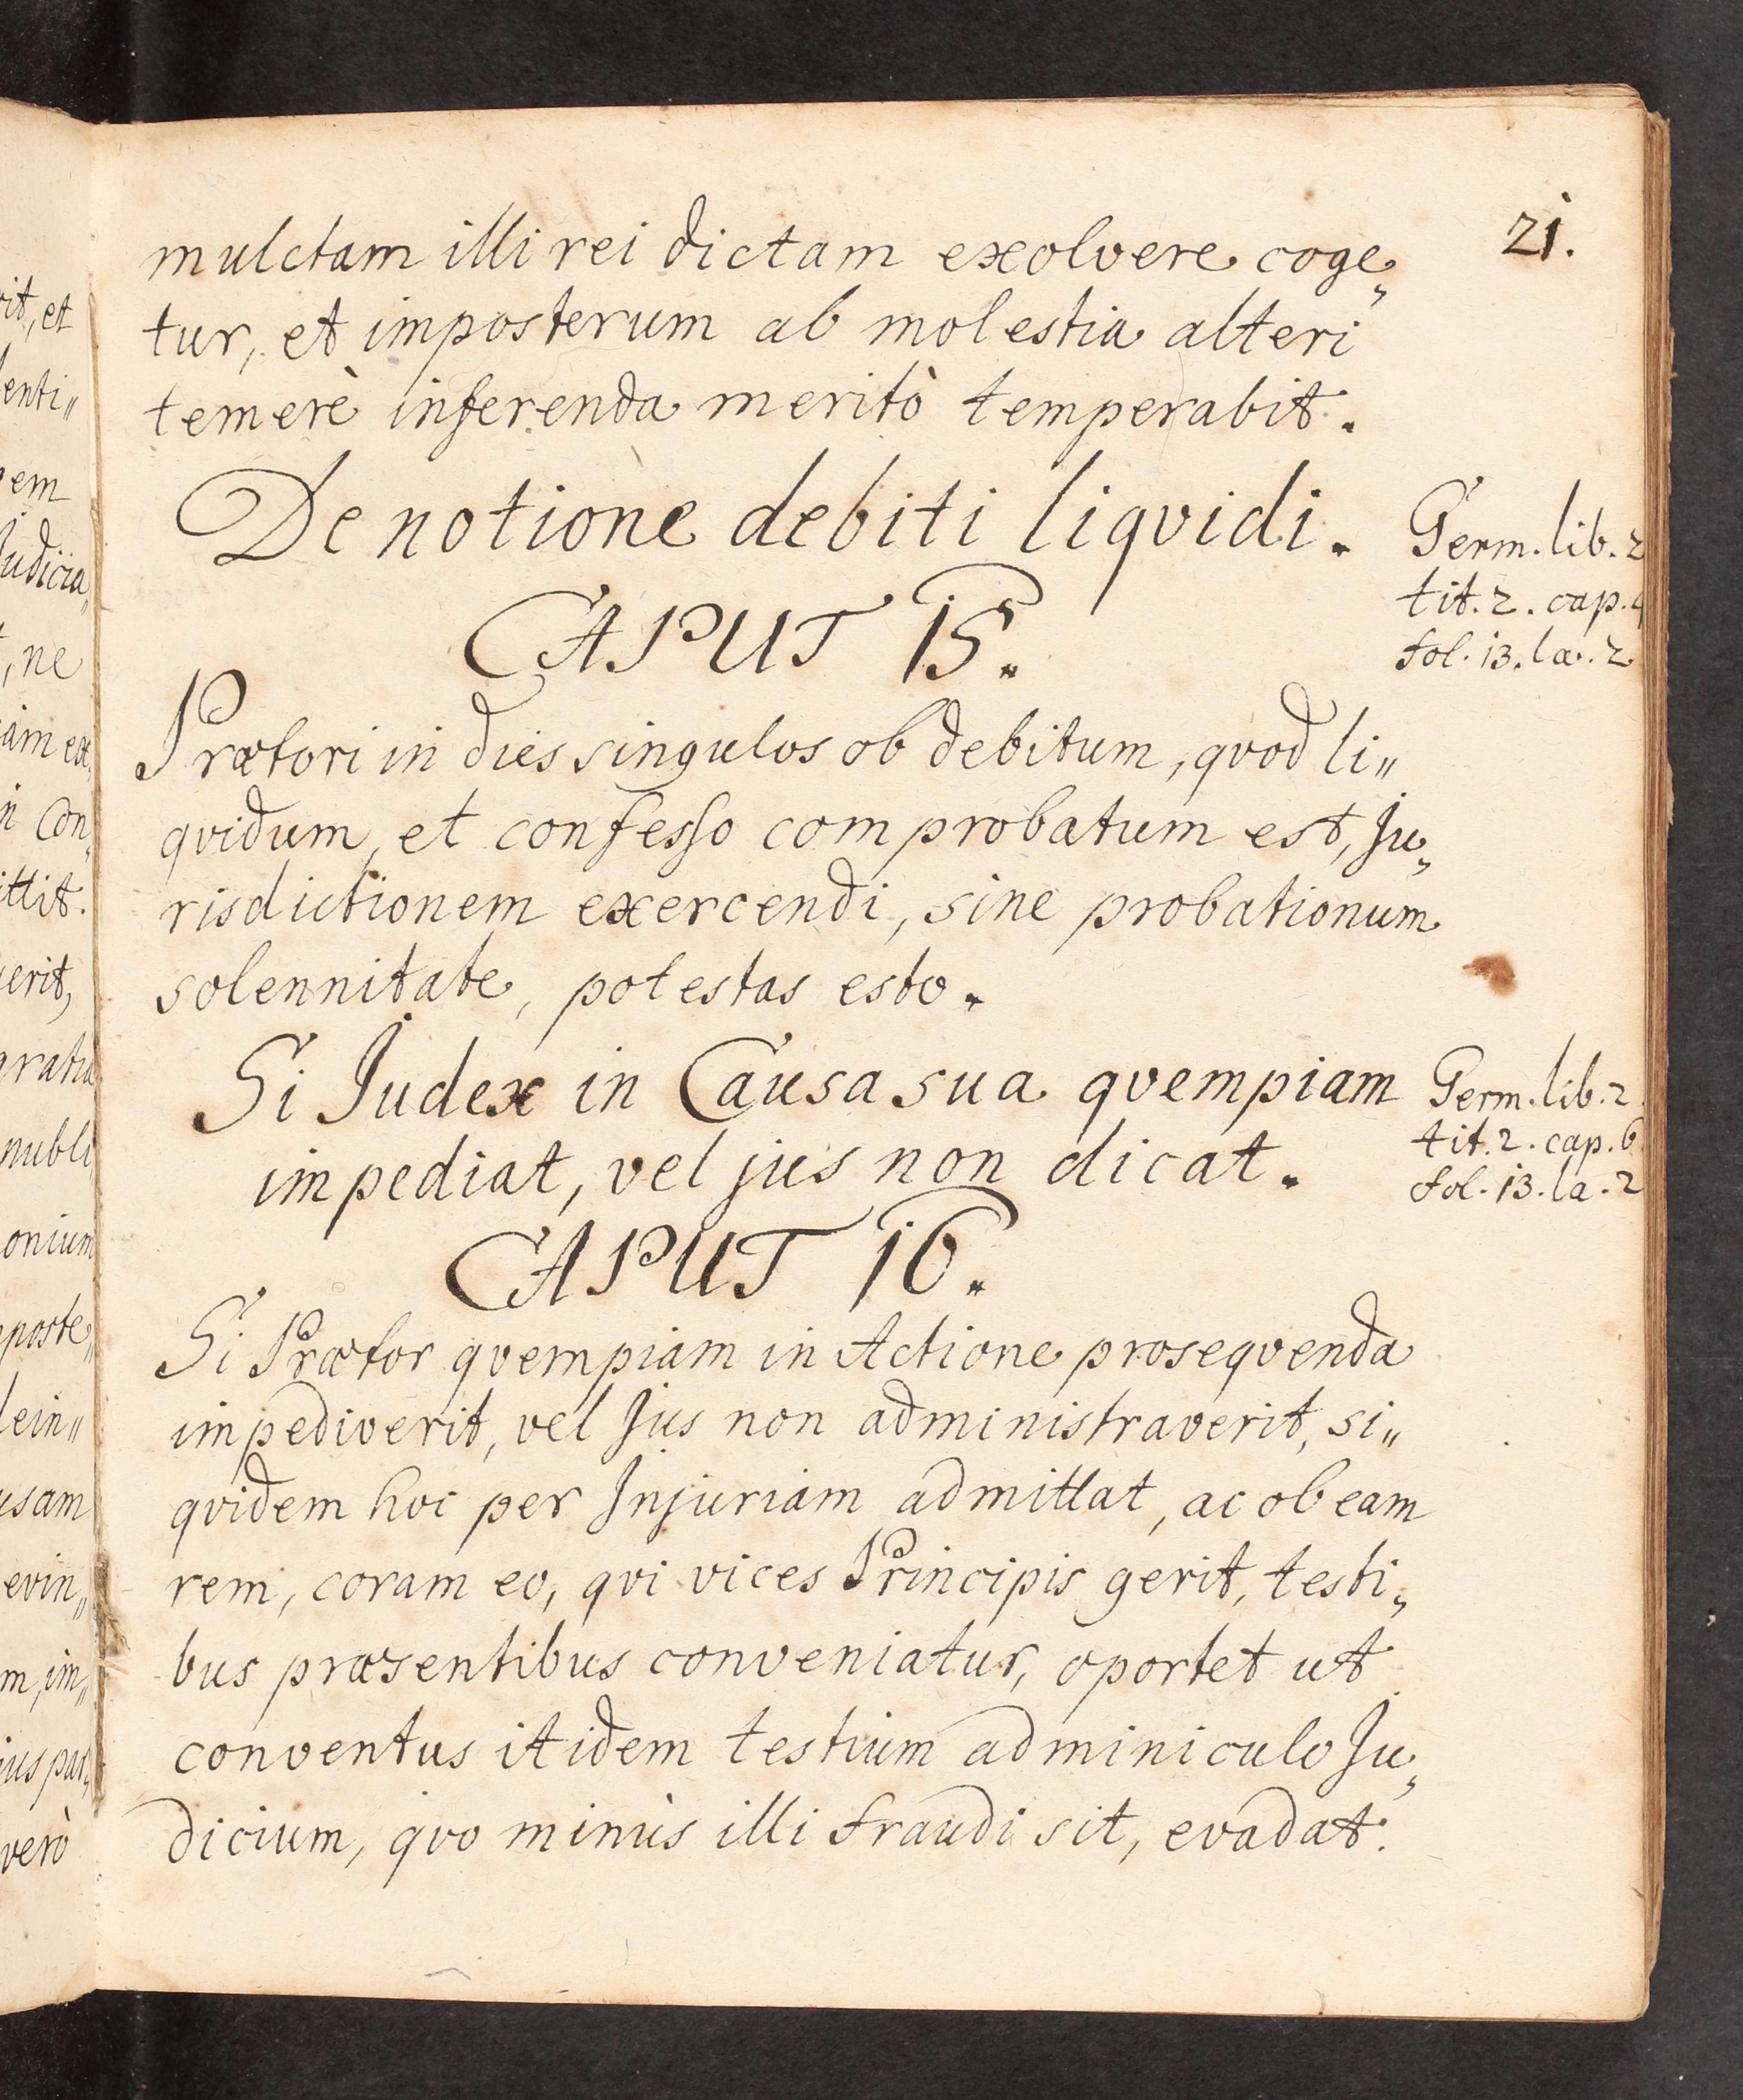 21.
mulctam illi rei dictam exolvere coge„
tur, et imposterum ab molestia alteri
temerè inferenda meritò temperabit.
De notione debiti liqvidi.
Germ. lib. 2
tit. 2. cap. 4
fol. 13. la. 2
CAPUT 15.
Prætori in dies singulos ob debitum, qvod li„
qvidum, et confesso comprobatum est, Ju„
risdictionem exercendi, sine probationum
solennitate, potestas esto.
Si Judex in Causa sua qvempiam
impediat, vel jus non dicat.
Germ. lib. 2
tit. 2. cap. 6
fol. 13. la. 2
CAPUT 16.
Si Prætor qvempiam in Actione proseqvenda
impediverit, vel Jus non administraverit, si„
qvidem hoc per Injuriam admittat, ac ob eam
rem, coram eo, qvi vices Principis gerit, testi„
bus præsentibus conveniatur, oportet ut
conventus itidem testium adminiculo Ju„
dicium, qvo minùs illi fraudi sit, evadat.
rit, et
enti„
em
Judicia„
, ne
iam ex„
in Con„
ittit.
erit,
gratia
nubli
onium
poste„
ein„
usam
evin„
m, im„
ius par„
verò